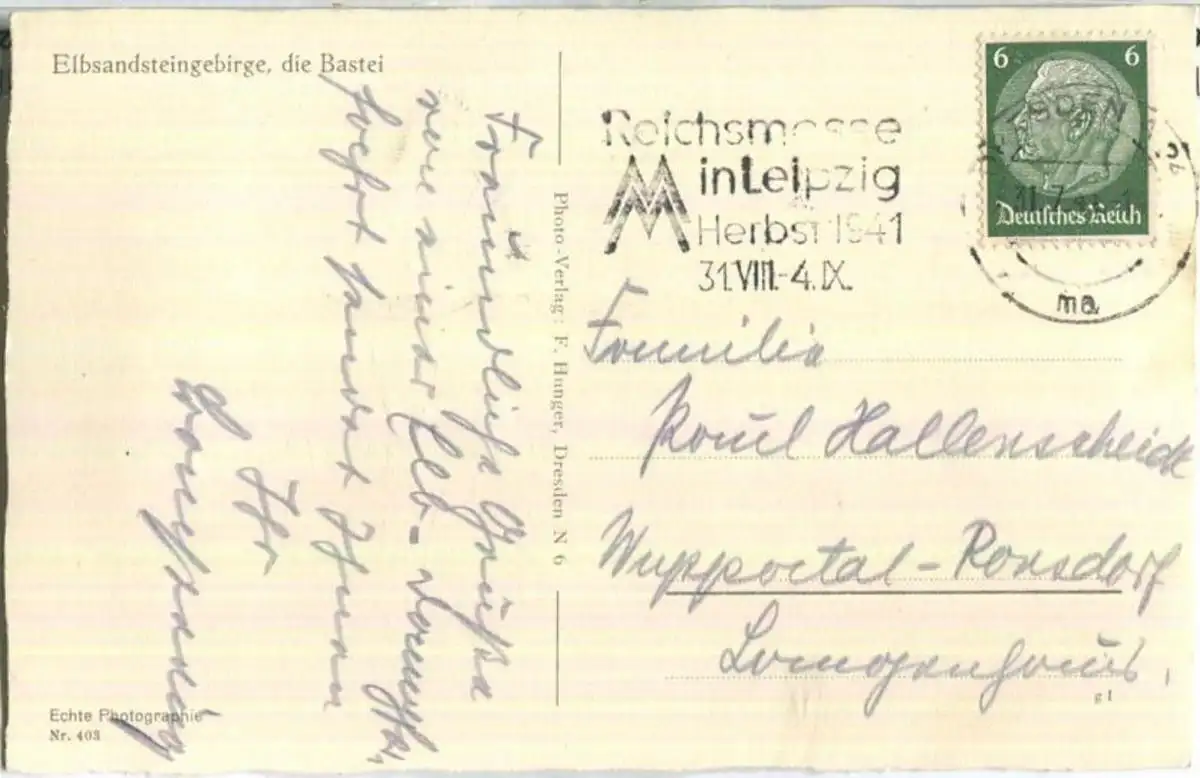 Elbsandsteingebirge, die Bastei
Freundliche Grüße
von einer Elb-Dampfer,
fahrt sendet Ihnen
Ihr
Photo-Verlag: F. Hunger, Dresden N 6
Echte Photographie
Nr. 403
6 6
Deutsches Reich
Reichsmesse
in Leipzig
Herbst 1941
31.VIII.-4.IX.
ma
Familie
Paul Hallenscheidt
Wuppertal-Ronsdorf
g 1